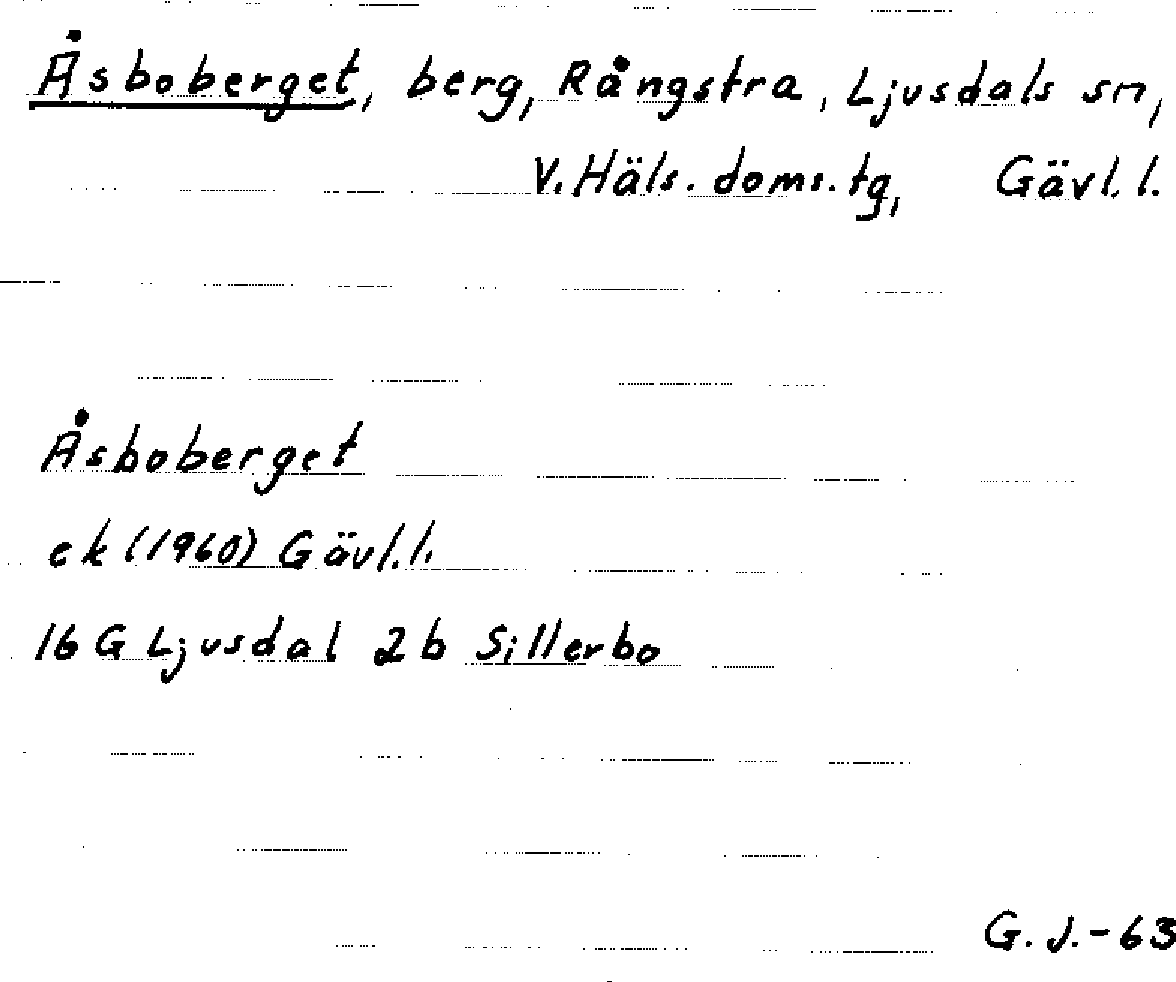 Åsboberget, berg, Rångstra, Ljusdals sn,
V. Häls. doms. tg, Gävl. l.
Åsboberget
ek (1960) Gävl. l.
16 G Ljusdal 2 b Sillerbo
G. J. - 63